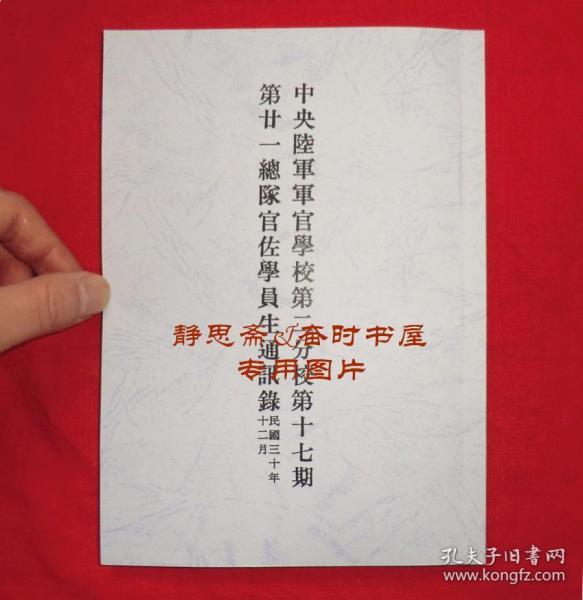 中央陸軍軍官學校第二分校第十七期
第廿一總隊官佐學員生通訊錄
民國三十年
十二月
静思斋&奋时书屋
专用图片
孔夫子旧书网
www.kongfz.com